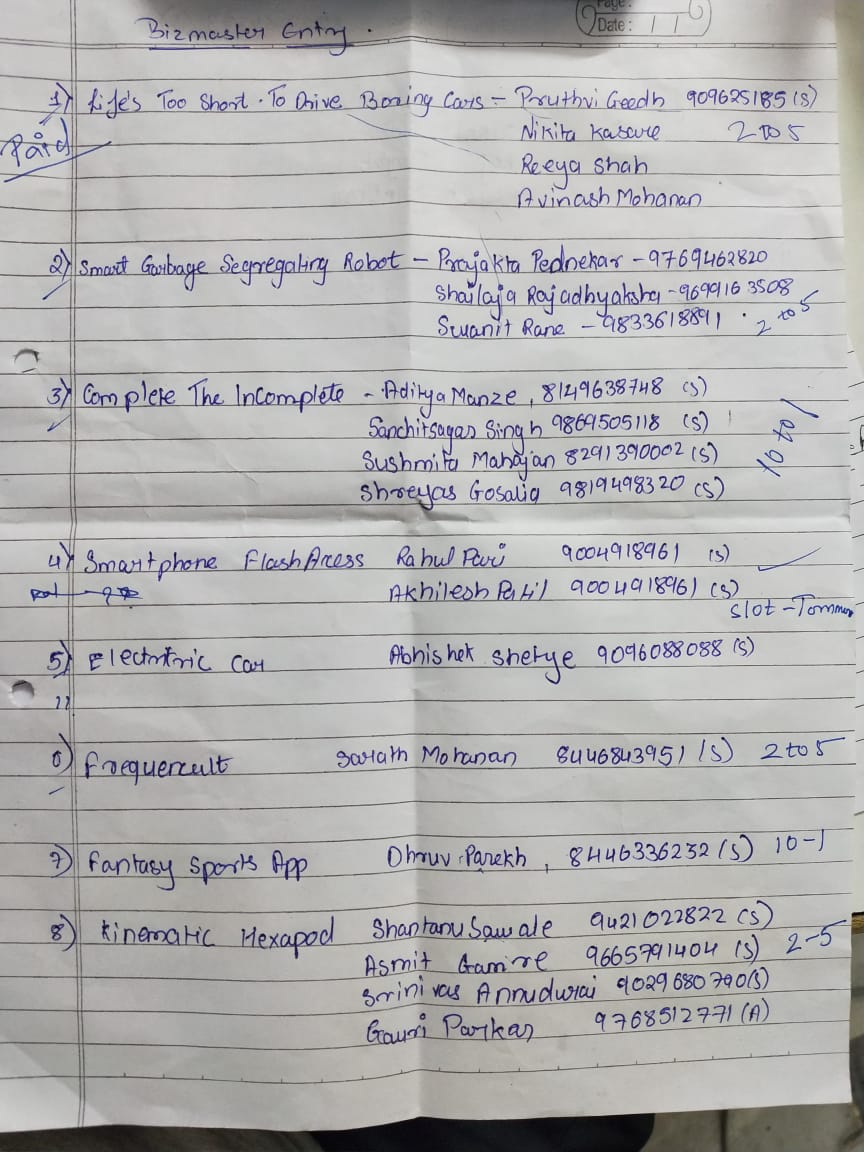 Page:
Date: / /
Bizmaster Entry.
1) Life's Too Short. To Drive Boring Cars - Pruthvi Geedh 909625185 (s)
Paid
Nikita Kasare 2 to 5
Reeya Shah
Avinash Mohanan
2) Smart Garbage Segregating Robot - Prajakta Pednekar - 9769462820
Shailaja Rajadhyaksha - 9699163508
Swanit Rane - 9833618891. 2 to 5
3) Complete The Incomplete - Aditya Manze, 8149638748 (s)
Sanchitsagar Singh 9869505118 (s)
10 to 1
Sushmita Mahajan 8291390002 (s)
Shreyas Gosalia 9819498320 (s)
4) Smartphone Flash Access Rahul Pari 9004918961 (s)
Akhilesh Patil 9004918961 (s)
Slot -
5) Electrtric Car Abhishek Shetye 9096088088 (s)
6) Frequercult Sarath Mohanan 8446843951 (s) 2 to 5
7) Fantasy Sports App Dhruv Parekh, 8446336232 (s) 10-1
8) Kinematic Hexapod Shantanu Sawale 9421022822 (s)
Asmit Gamre 9665791404 (s) 2-5
Srinivas Annudurai 9029680790 (s)
Gauri Parkar 9768512771 (A)